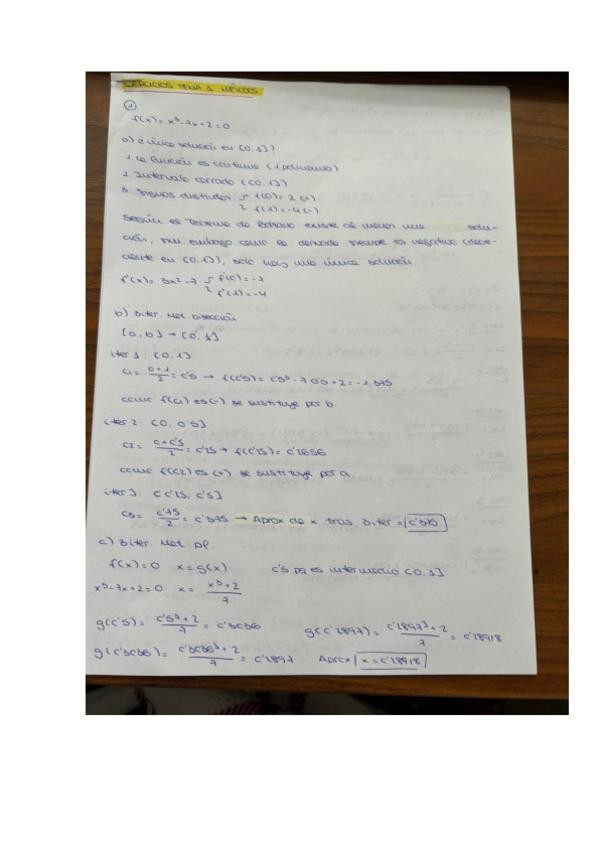 EJERCICIOS TEMA 1 MÉTODOS
①
f(x) = x³-7x+2=0
a) ¿única solución en [0,1]?
1. la función es continua (1 polinomio)
2. Intervalo cerrado ([0,1])
3. Signos distintos f(0)=2 (+)
f(1)=-4 (-)
Según el Teorema de Bolzano existe al menos una solu-
ción, sin embargo como la derivada siempre es negativa (decre-
ciente en [0,1]), solo hay una única solución
f'(x)= 3x²-7 f'(0)=-7
f'(1)=-4
b) 3 iter. Met Bisección
[a,b] → [0,1]
iter 1: [0,1]
c1= 0+1/2 = 0'5 → f(0'5)= 0'5³-7·0'5+2=-1,375
como f(c1) es (-) se sustituye por b.
iter 2: [0, 0'5]
c2= 0+0'5/2 = 0'25 → f(0'25)= 0'2656
como f(c2) es (+) se sustituye por a
iter 3: [0'25, 0'5]
c3= 0'75/2 = 0'375 → Aprox de x tras 3 iter = 0'375
c) 3 iter. Met. pf.
f(x)=0 x=g(x) 0'5 pq es intermedio [0,1]
x³-7x+2=0 x= x³+2/7
g(0'5)= 0'5³+2/7 = 0'3036 g(0'2897)= 0'2897³+2/7 = 0'2892
g(0'3036)= 0'3036³+2/7 = 0'2897 Aprox x=0'2892